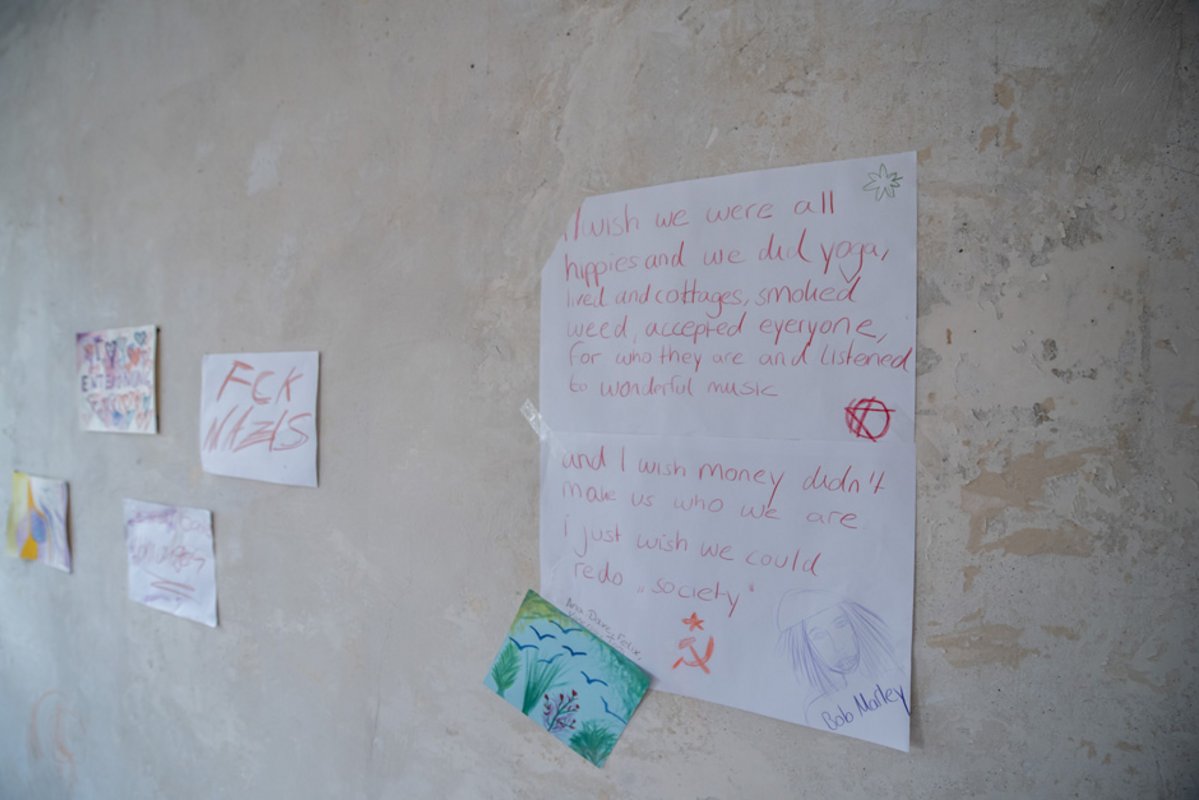 FCK
NAZIS
I wish we were all
hippies and we did yoga,
lived and cottages, smoked
weed, accepted eyeryone,
for who they are and listened
to wonderful music
and I wish money didn't
make us who we are.
i just wish we could
redo „society"
Bob Marley